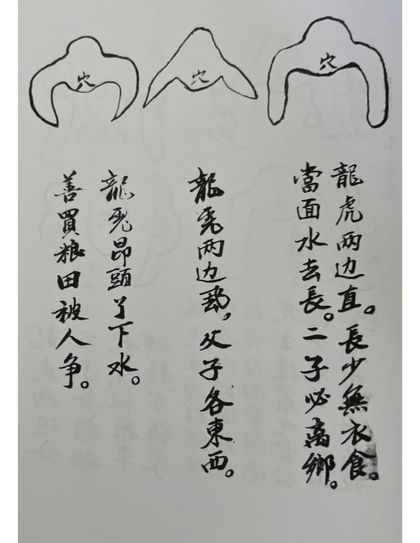 穴
穴
穴
龍虎两边直。長少無衣食。
當面水去長。二子必离鄉。
龍虎两边，父子各東西。
龍虎昂頭了下水。
善買粮田被人争。